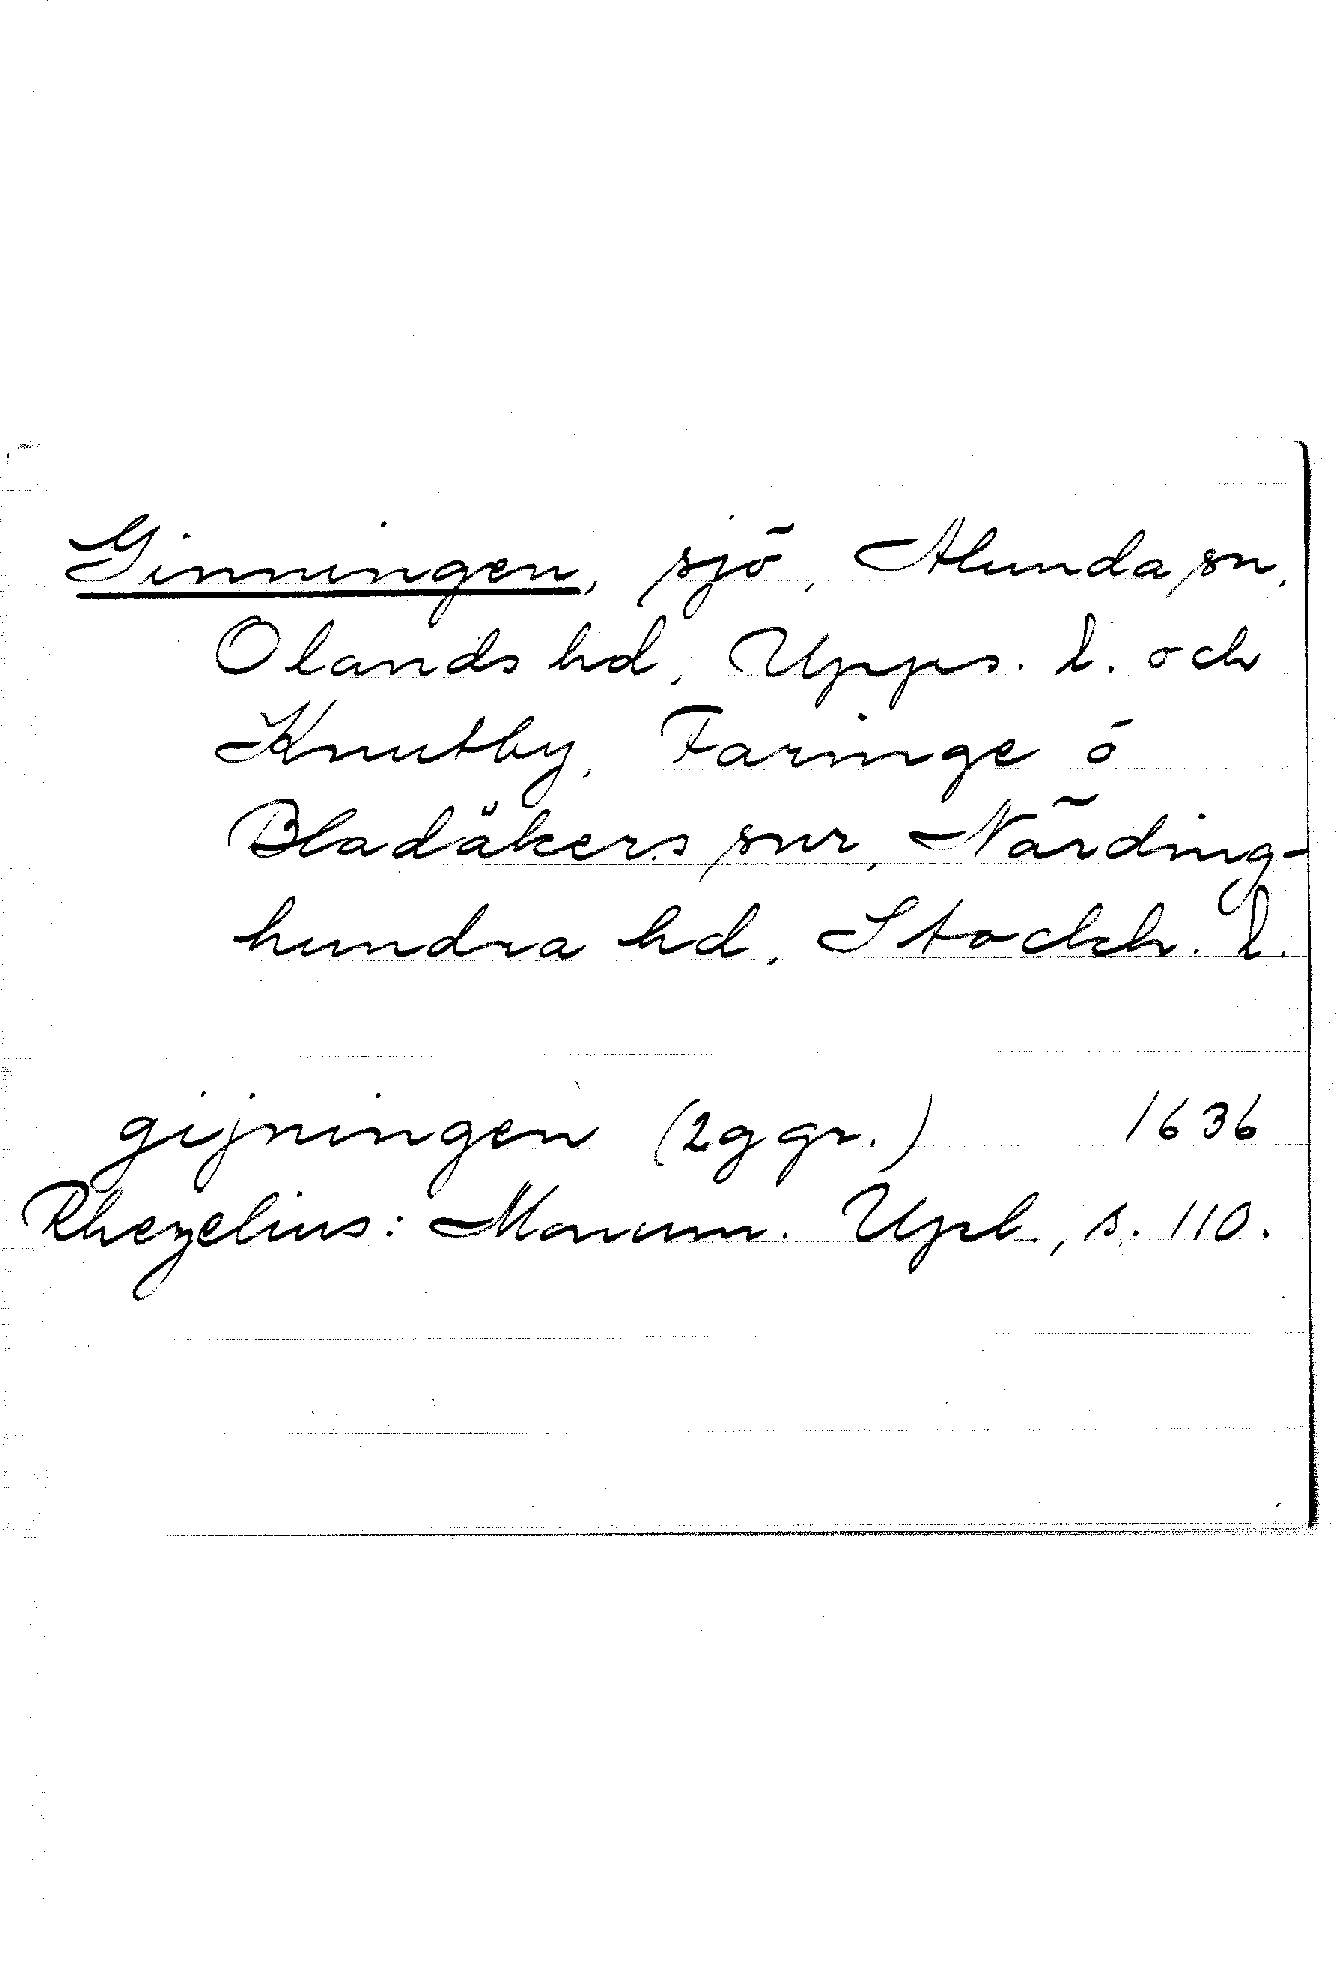 Ginningen, sjö, Alunda sn,
Olands hd, Upps. l. och
Knutby, Faringe o
Bladåkers snr, Närding-
hundra hd, Stockh. l.
gijningen (2 ggr.) 1636
Rhezelius: Monum. Upl, s. 110.